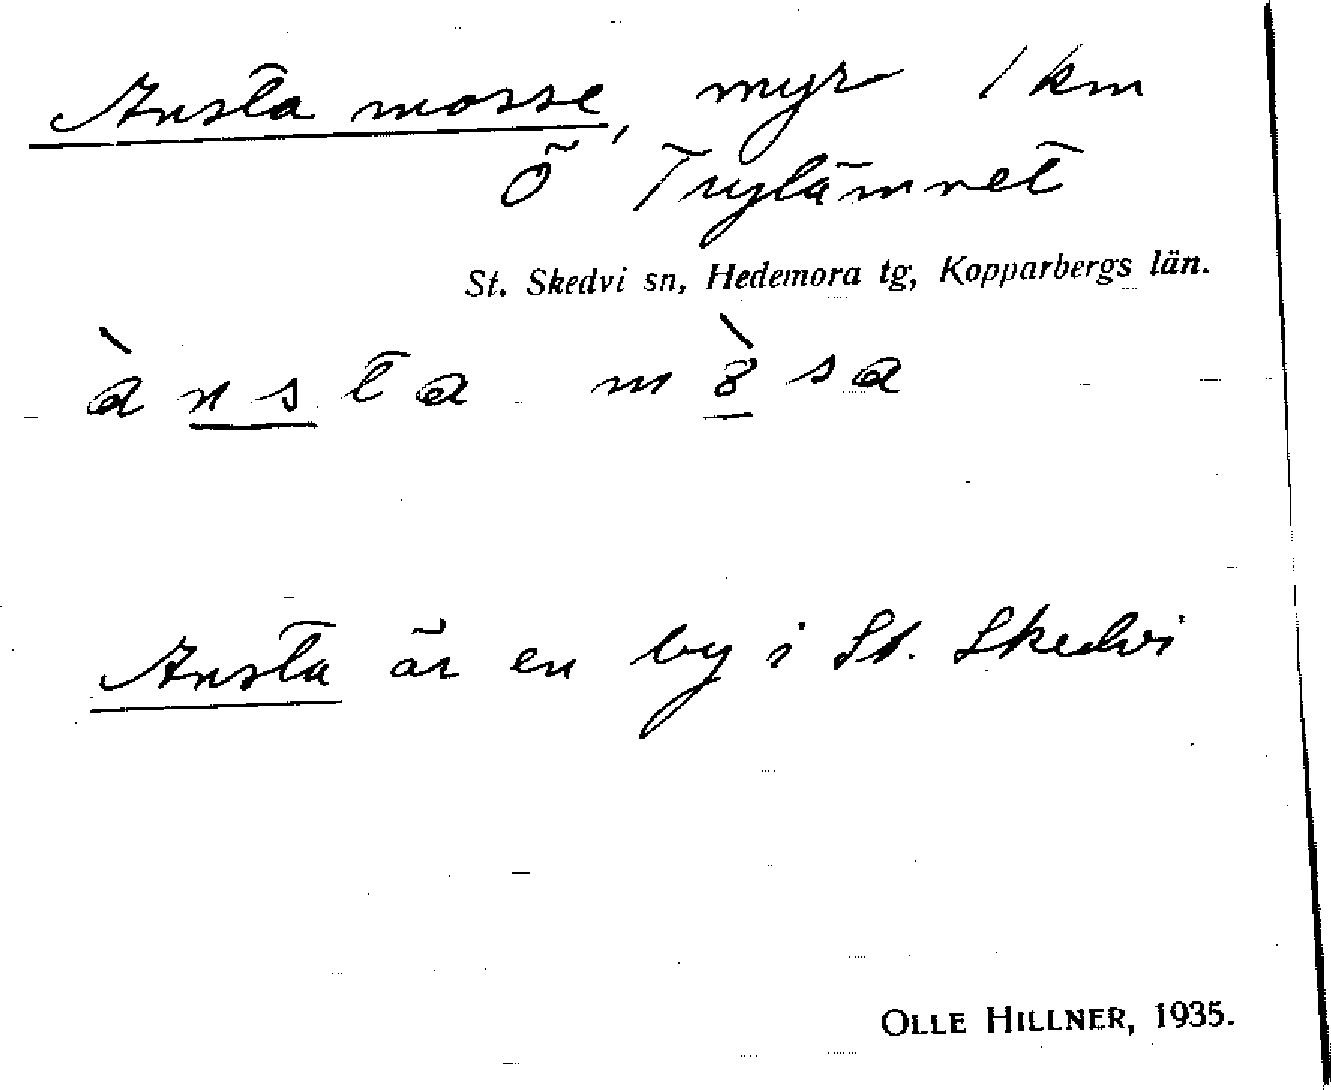 Ansta mosse, myr 1 km
Ö Trytämnet
St. Skedvi sn, Hedemora tg, Kopparbergs län.
ànsta m s a
Ansta är en by i St. Skedvi
OLLE HILLNER, 1935.